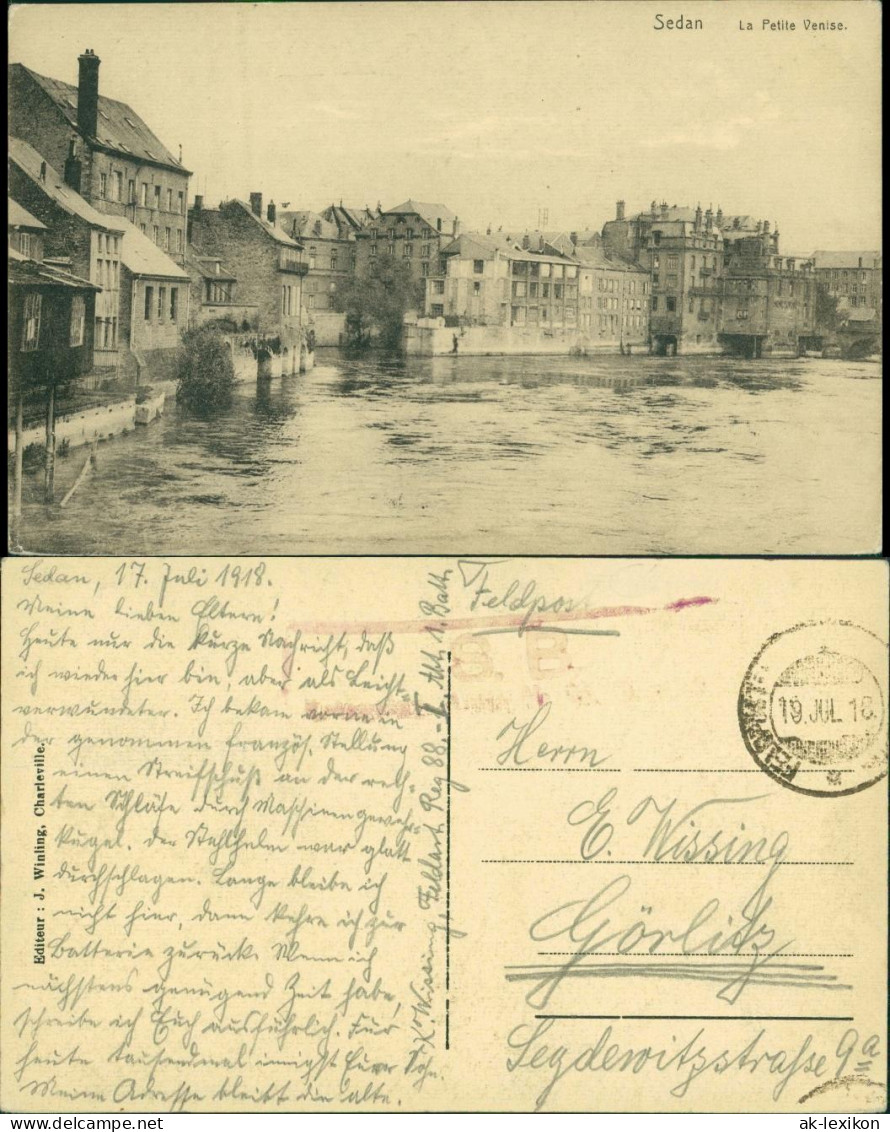 Sedan La Petite Venise.
Sedan, 17. Juli 1918.
Meine lieben Eltern!
Heute nur die kurze Nachricht, daß
ich wieder hier bin, aber als Leicht-
verwundeter. Ich bekam vorne in
der genommen französ. Stellung
einen Streifschuß an der rech-
ten Schläfe durch Maschinengewehr-
kugel. Der Stahlhelm war glatt
durchschlagen. Lange bleibe ich
nicht hier, dann kehre ich zur
Batterie zurück. Wenn ich
nächstens genügend Zeit habe,
schreibe ich Euch ausführlich. Für
heute tausendmal innigst Euer Sohn.
Meine Adresse bleibt die alte.
K. Wissing, Feldart. Reg 88. - I. Abt. 1. Batt.
Editeur : J. Winling, Charleville.
Feldpost
S. B.
19. JUL. 18
Herrn
E. Wissing
Görlitz
Seydewitzstraße 9a III
ak-lexikon